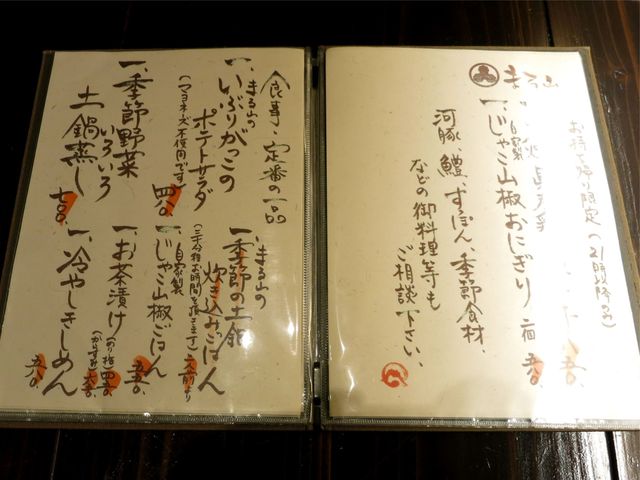 まる山
お持ち帰り限定(21時以降のみ)
自家製
一、じゃこ山椒おにぎり 二個 五〇〇
河豚、鱧、すっぽん、季節食材、
などの御料理等も
ご相談下さい。
食事、定番の一品
まる山の
一、いぶりがっこの
ポテトサラダ
(マヨネーズ不使用です) 四八〇
一、季節野菜
いろいろ
土鍋蒸し 七〇〇
まる山の
一、季節の土鍋
炊き込みごはん
(三十分程お時間を頂きます) 二人前より
自家製
一、じゃこ山椒ごはん 五五〇
一、お茶漬け
(のり・梅) 四五〇
(からすみ) 六五〇
一、冷やしきしめん 五八〇